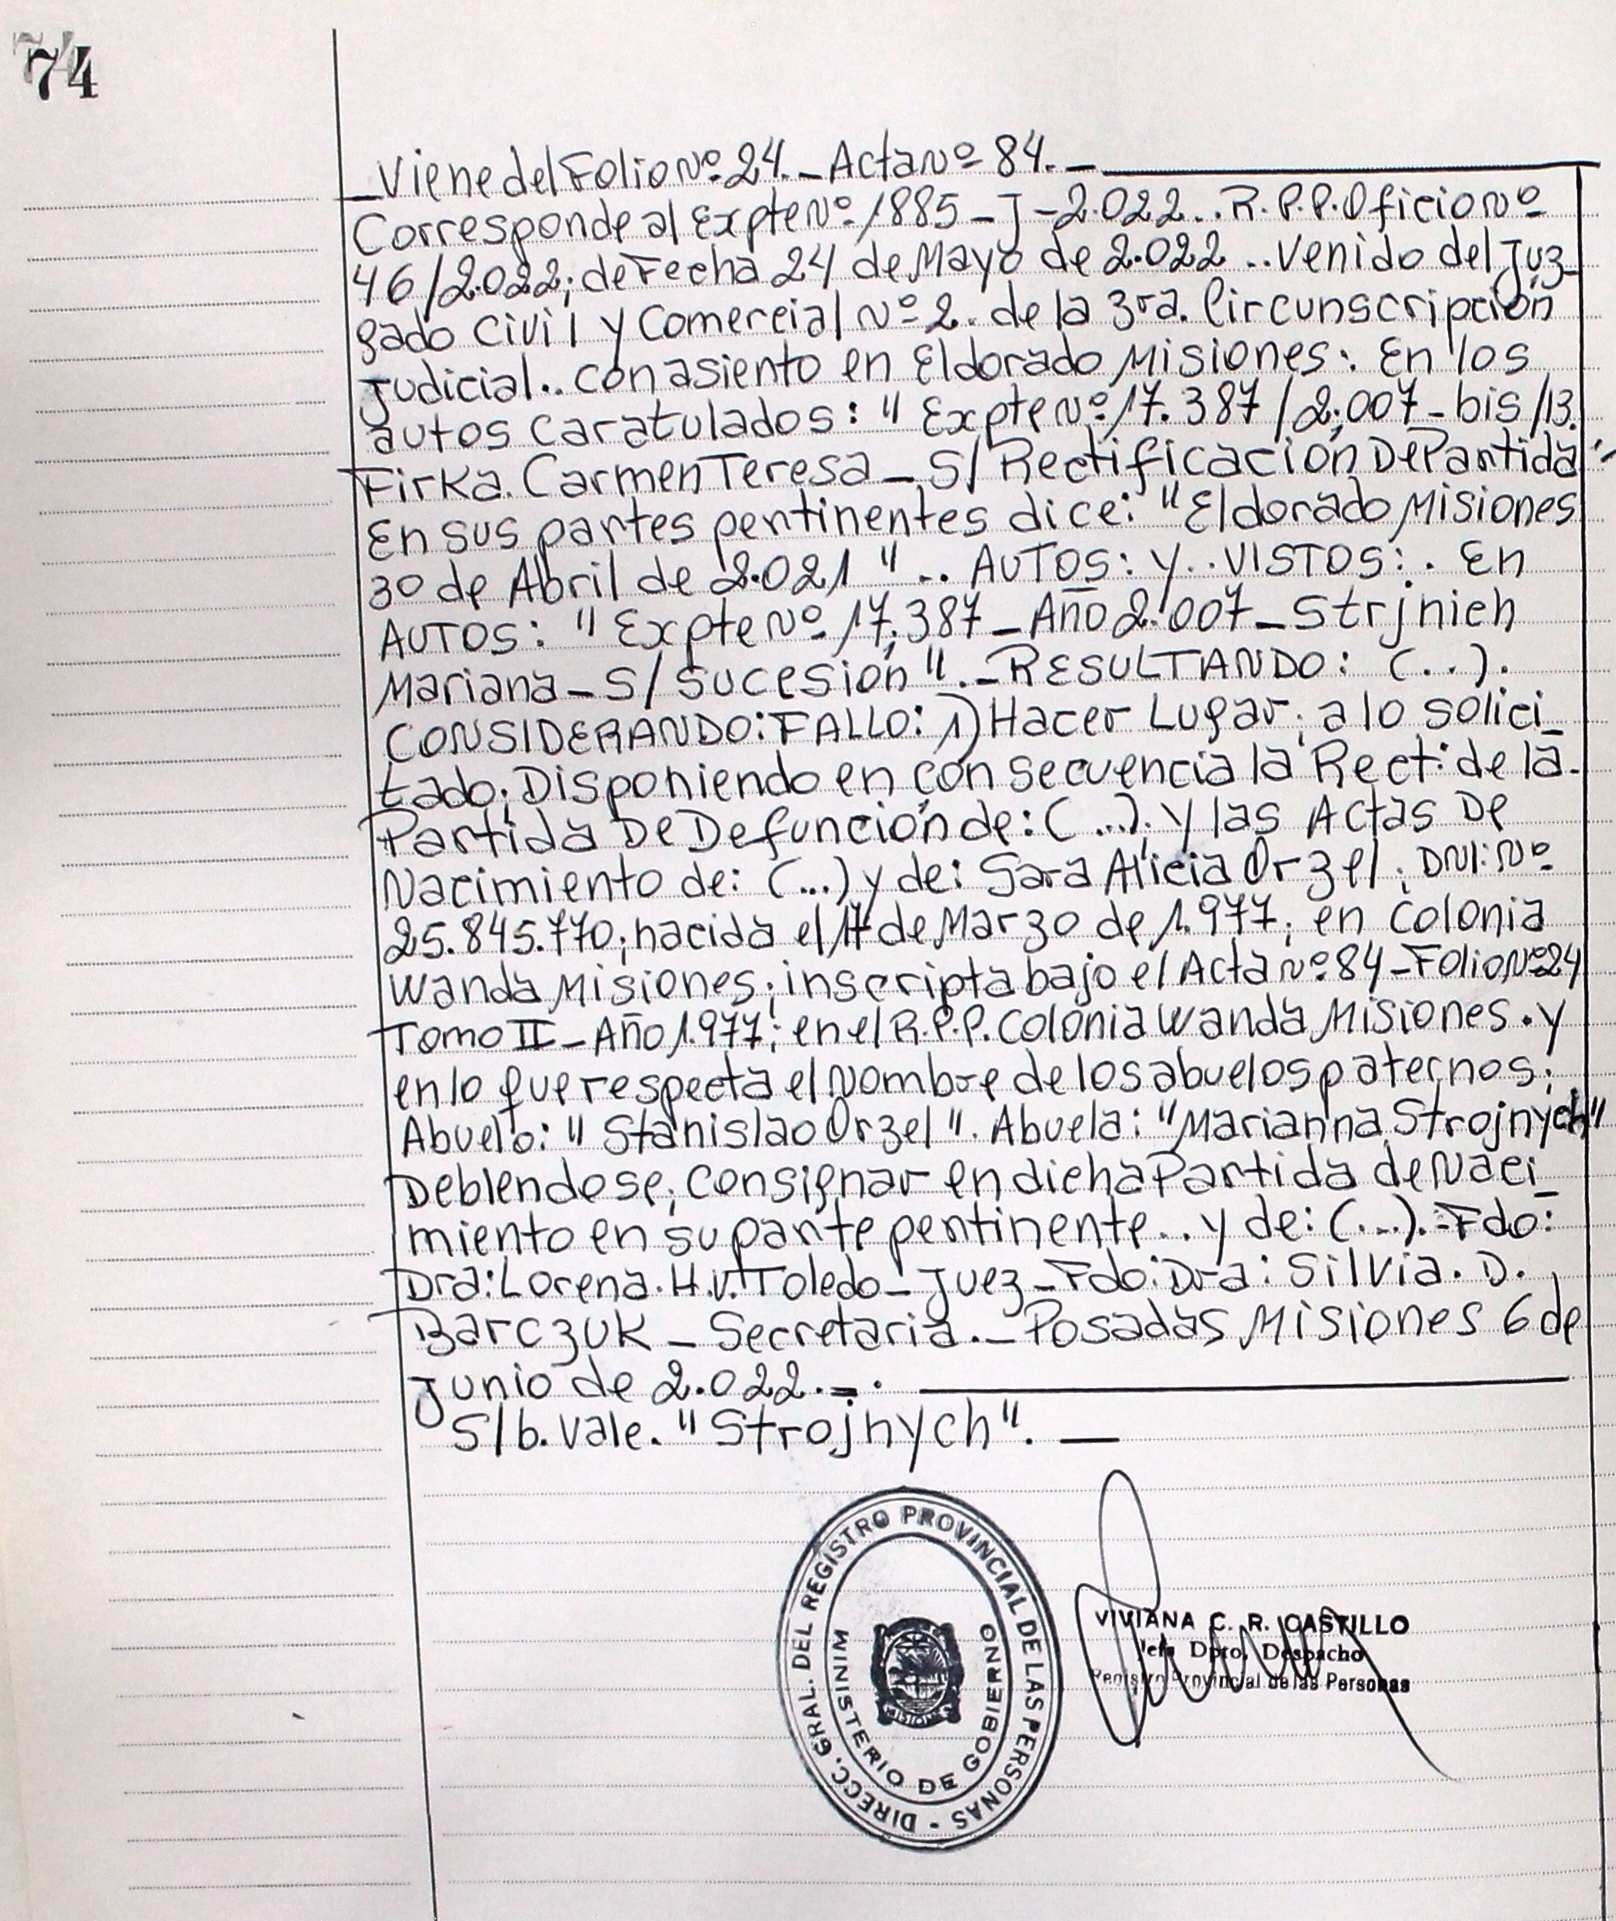 74
_Viene del Folio Nº 24._Acta Nº 84._
Corresponde al Expte Nº 1885_J_2.022.. R.P.P. Oficio Nº
46/2.022; de Fecha 24 de Mayo de 2.022.. Venido del Juz_
gado Civil y Comercial Nº 2. de la 3ra. Circunscripción
Judicial.. con asiento en Eldorado Misiones: En los
autos caratulados: "Expte Nº 17.387/2.007_bis/13.
Firka. Carmen Teresa_S/Rectificación De Partida"_
En sus partes pertinentes dice: "Eldorado Misiones
30 de Abril de 2.021".. AUTOS: Y.. VISTOS:. En
AUTOS: "Expte Nº 17.387_Año 2.007_Strjnich
Mariana_S/Sucesión"._RESULTANDO: (..).
CONSIDERANDO: FALLO: 1) Hacer Lugar. a lo solici_
tado; Disponiendo en consecuencia la Rect: de la.
Partida De Defunción de: (...). y las Actas De
Nacimiento de: (...) y de: Sara Alicia Orzel; DNI: Nº
25.845.770; nacida el 17 de Marzo de 1.977; en Colonia
Wanda Misiones; inscripta bajo el Acta Nº 84_Folio Nº 24
Tomo II_Año 1.977; en el R.P.P. Colonia Wanda Misiones. y
en lo que respecta el Nombre de los abuelos paternos;
Abuelo: "Stanislao Orzel". Abuela: "Marianna Strojnych"
Debiendose; Consignar en dicha Partida de Naci_
miento en su parte pertinente.. y de: (...).=Fdo:
Dra: Lorena. H.V. Toledo_Juez_Fdo: Dra: Silvia. D.
Barczuk_Secretaria._Posadas Misiones 6 de
Junio de 2.022.=.
S/b. Vale. "Strojnych".
DIRECC. GRAL. DEL REGISTRO PROVINCIAL DE LAS PERSONAS -
MINISTERIO DE GOBIERNO
MISIONES
VIVIANA C. R. CASTILLO
Jefa Dpto. Despacho
Registro Provincial de las Personas